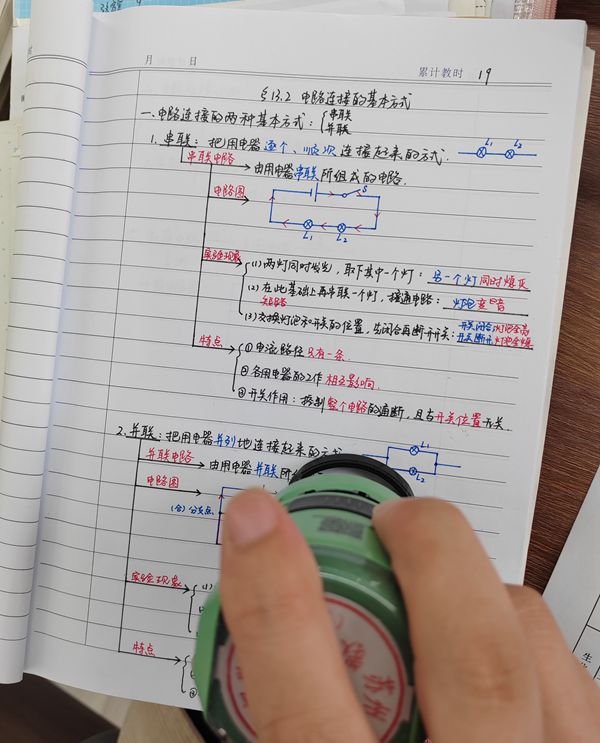 月 日
累计教时 19
§13.2 电路连接的基本方式
一、电路连接的两种基本方式：{串联 并联
1. 串联：把用电器逐个、顺次连接起来的方式. L₁ L₂
串联电路 由用电器串联所组成的电路.
电路图 S
L₁ L₂
实验现象
(1) 两灯同时发光，取下其中一个灯：另一个灯同时熄灭
(2) 在此基础上再串联一个灯，接通电路：灯泡变暗
短路
(3) 交换灯泡和开关的位置，先闭合再断开开关：开关闭合灯泡全亮
开关断开灯泡全熄
特点
① 电流路径只有一条.
② 各用电器的工作相互影响.
③ 开关作用：控制整个电路的通断，且与开关位置无关.
2. 并联：把用电器并列地连接起来的方式 L₁
L₂
并联电路 由用电器并联所
电路图
(合) 分支点
实验现象 (1)
特点